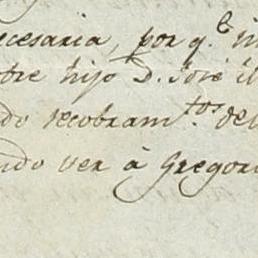 ecesaria, por q.e
hijo D. José
recobram.tos de
ver à Gregor